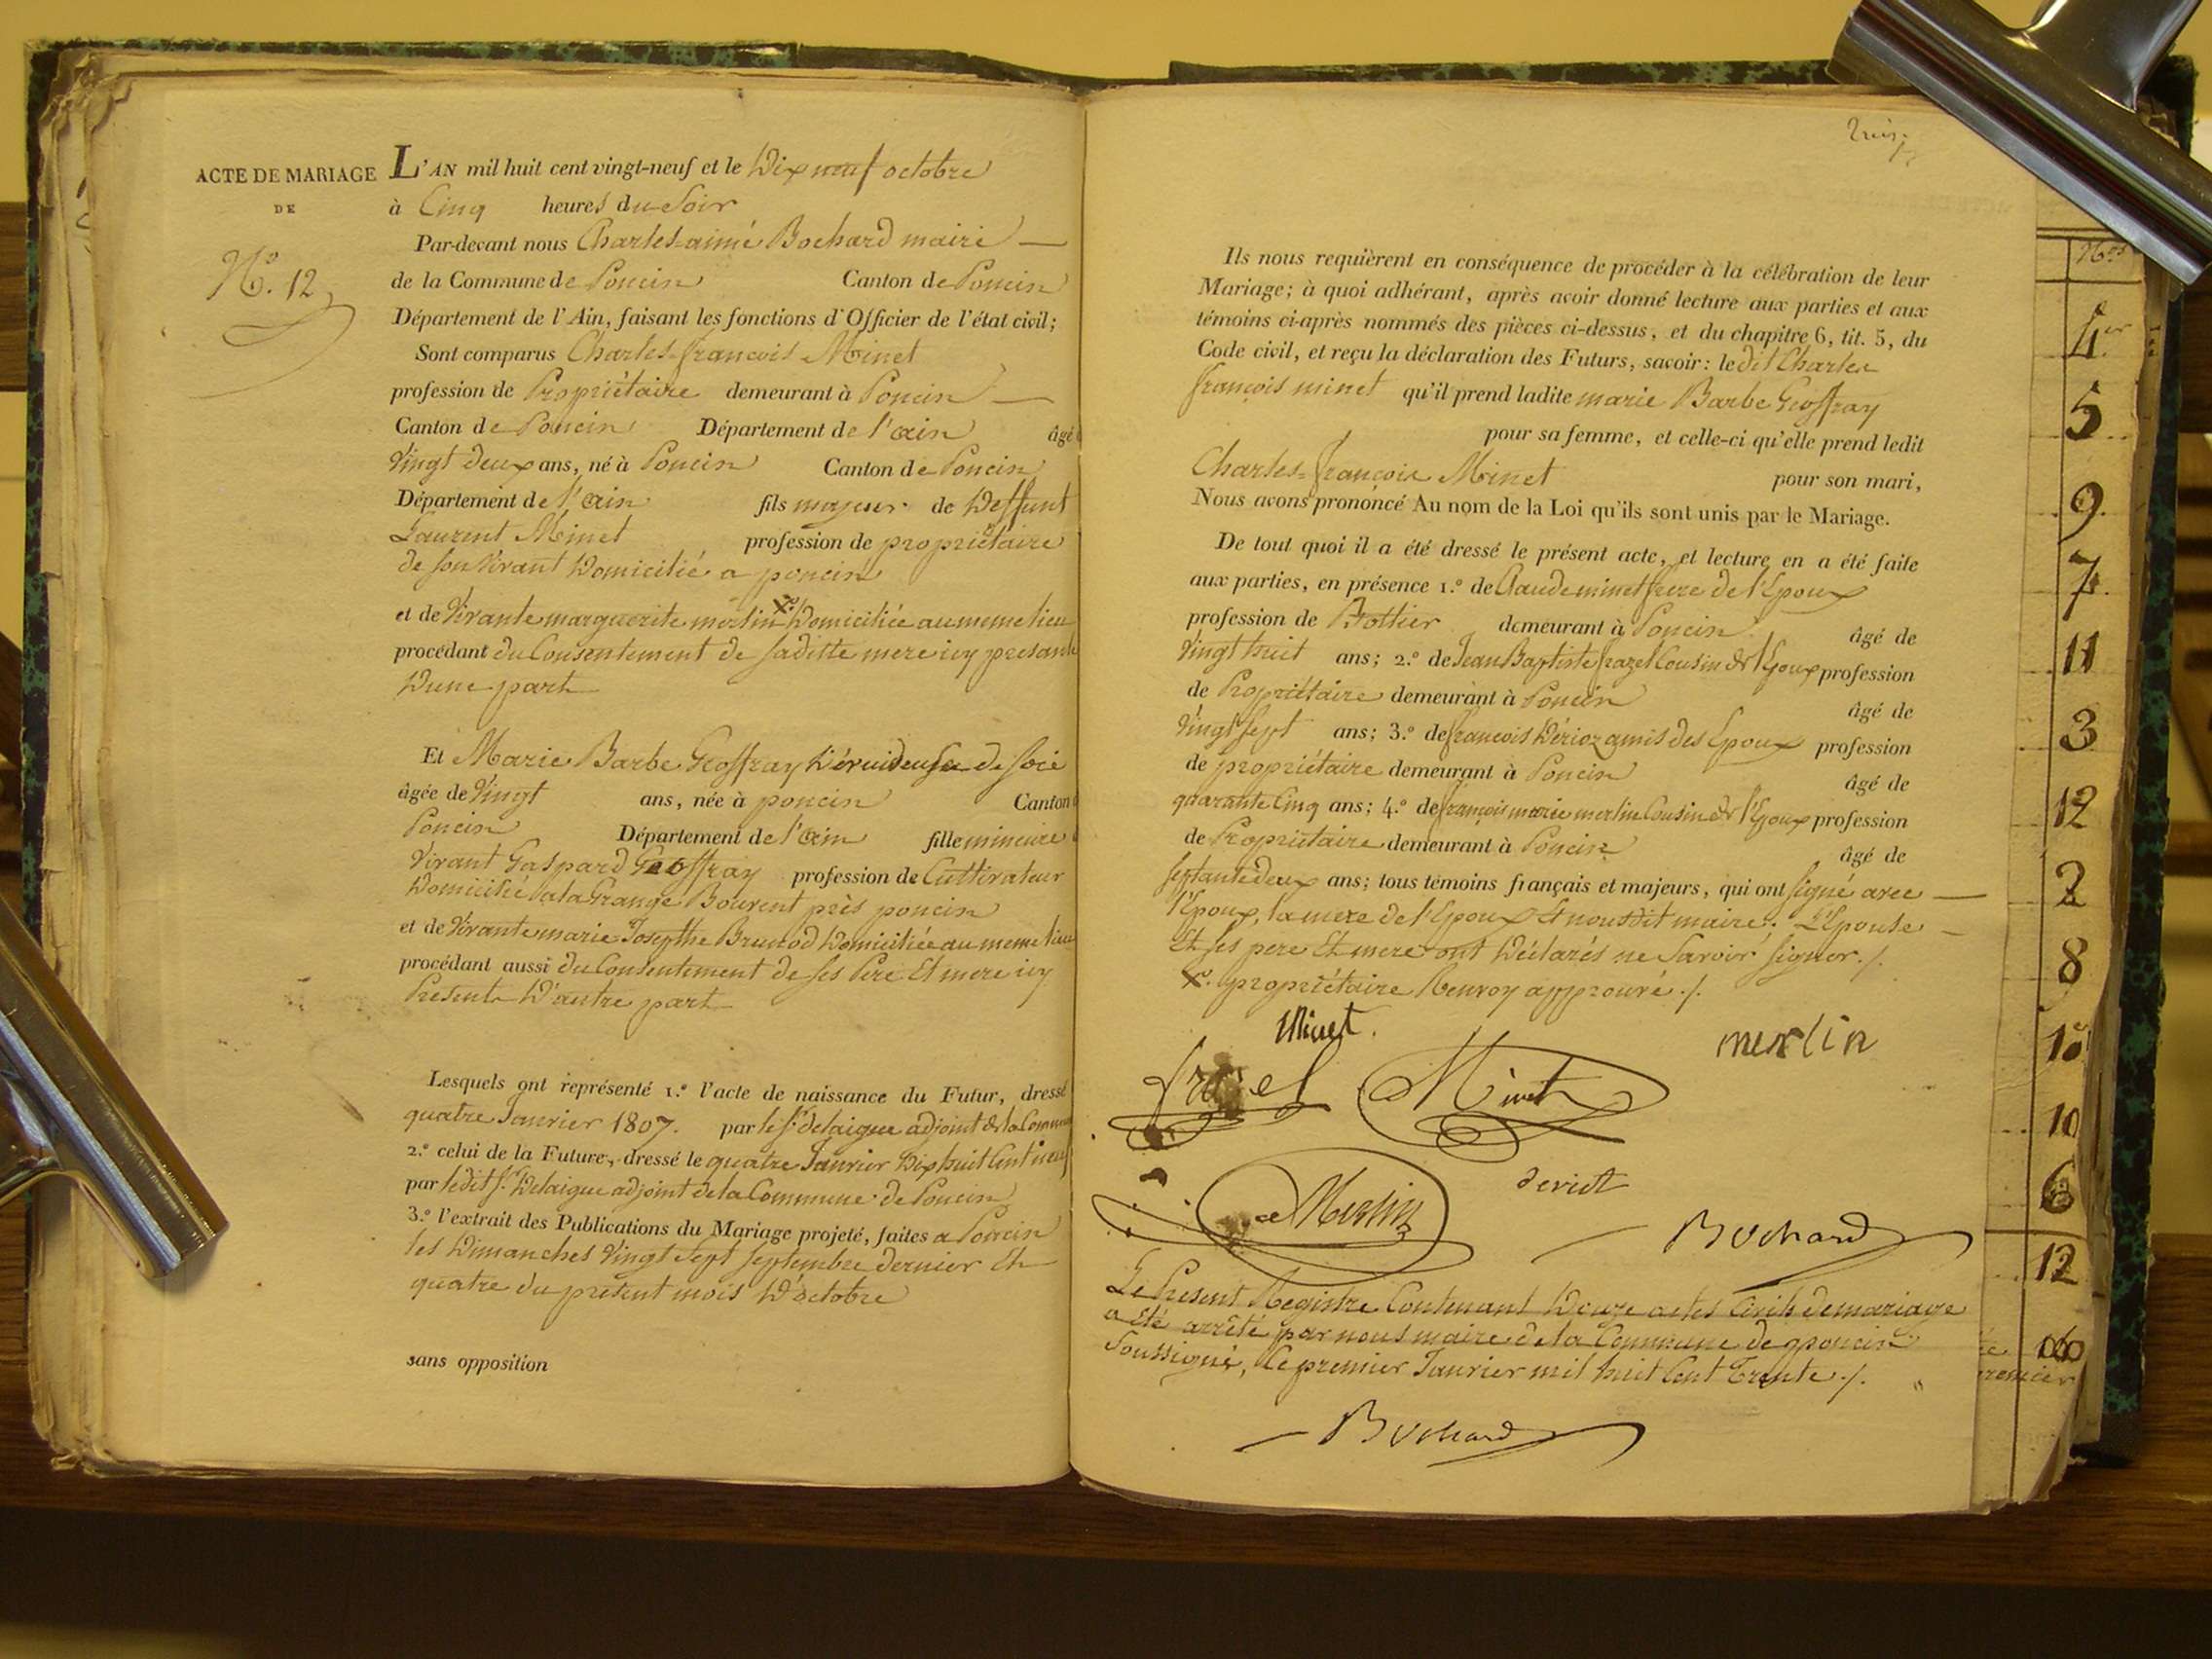 ACTE DE MARIAGE
DE
N.º 12
L'AN mil huit cent vingt-neuf et le Dix neuf octobre
à Cinq heures du Soir
Par-devant nous Charles-aimé Bochard maire —
de la Commune de Poncin Canton de Poncin
Département de l'Ain, faisant les fonctions d'Officier de l'état civil;
Sont comparus Charles-françois Minet
profession de Propriétaire demeurant à Poncin —
Canton de Poncin Département de l'ain âgé
Vingt deux ans, né à Poncin Canton de Poncin
Département de l'ain fils majeur de Deffunt
Laurent Minet profession de propriétaire
de son Vivant Domicilié a poncin
et de Vivante marguerite merlin x. Domiciliée au meme lieu
procédant du Consentement de saditte mere icy presante
D'une part
Et Marie Barbe Geoffray Dévuideuse de soie
âgée de Vingt ans, née à poncin Canton
Poncin Département de l'ain fille mineure
Vivant Gaspard Geoffray profession de Cultivateur
Domicilié a la Grange Bouvent près poncin
et de Vivante marie Josephte Brunod Domiciliée au meme lieu
procédant aussi du Consentement de ses Pere Et mere icy
Présents D'autre part
Lesquels ont représenté 1.º l'acte de naissance du Futur, dressé
quatre Janvier 1807. par le s.r delaigue adjoint de la Commune
2.º celui de la Future, dressé le quatre Janvier Dix huit Cent neuf
par ledit s.r Delaigue adjoint de la Commune de Poncin
3.º l'extrait des Publications du Mariage projeté, faites a Poncin
les Dimanches Vingt Sept Septembre dernier Et
quatre du présent mois D'octobre
sans opposition
Ils nous requièrent en conséquence de procéder à la célébration de leur
Mariage; à quoi adhérant, après avoir donné lecture aux parties et aux
témoins ci-après nommés des pièces ci-dessus, et du chapitre 6, tit. 5, du
Code civil, et reçu la déclaration des Futurs, savoir: le dit Charles
françois minet qu'il prend ladite marie Barbe Geoffray
pour sa femme, et celle-ci qu'elle prend ledit
Charles-françois Minet pour son mari,
Nous avons prononcé Au nom de la Loi qu'ils sont unis par le Mariage.
De tout quoi il a été dressé le présent acte, et lecture en a été faite
aux parties, en présence 1.º de Claude minet frere de l'Epoux
profession de Bottier demeurant à Poncin âgé de
Vingt huit ans; 2.º de Jean Baptiste frazel Cousin de l'Epoux profession
de Propriétaire demeurant à Poncin âgé de
Vingt Sept ans; 3.º de françois Dérioz amis des Epoux profession
de propriétaire demeurant à Poncin âgé de
quarante Cinq ans; 4.º de françois marie merlin Cousin de l'Epoux profession
de Propriétaire demeurant à Poncin âgé de
septante deux ans; tous témoins français et majeurs, qui ont signé avec —
l'Epoux, la mere de l'Epoux Et nousdit maire. L'Epouse —
Et ses pere Et mere ont Déclarés ne Savoir signer ./.
x. propriétaire Renvoy approuvé ./.
Minet.
merlin
frazel Minet
deriot
Merlin
Bochard
Le Présent Registre Contenant Douze actes Civils de mariage
a été arrêté par nous maire de la Commune de poncin
Soussigné, le premier Janvier mil huit Cent Trente ./.
Bochard
N.os
4
5
9
7
11
3
12
2
8
10
6
12